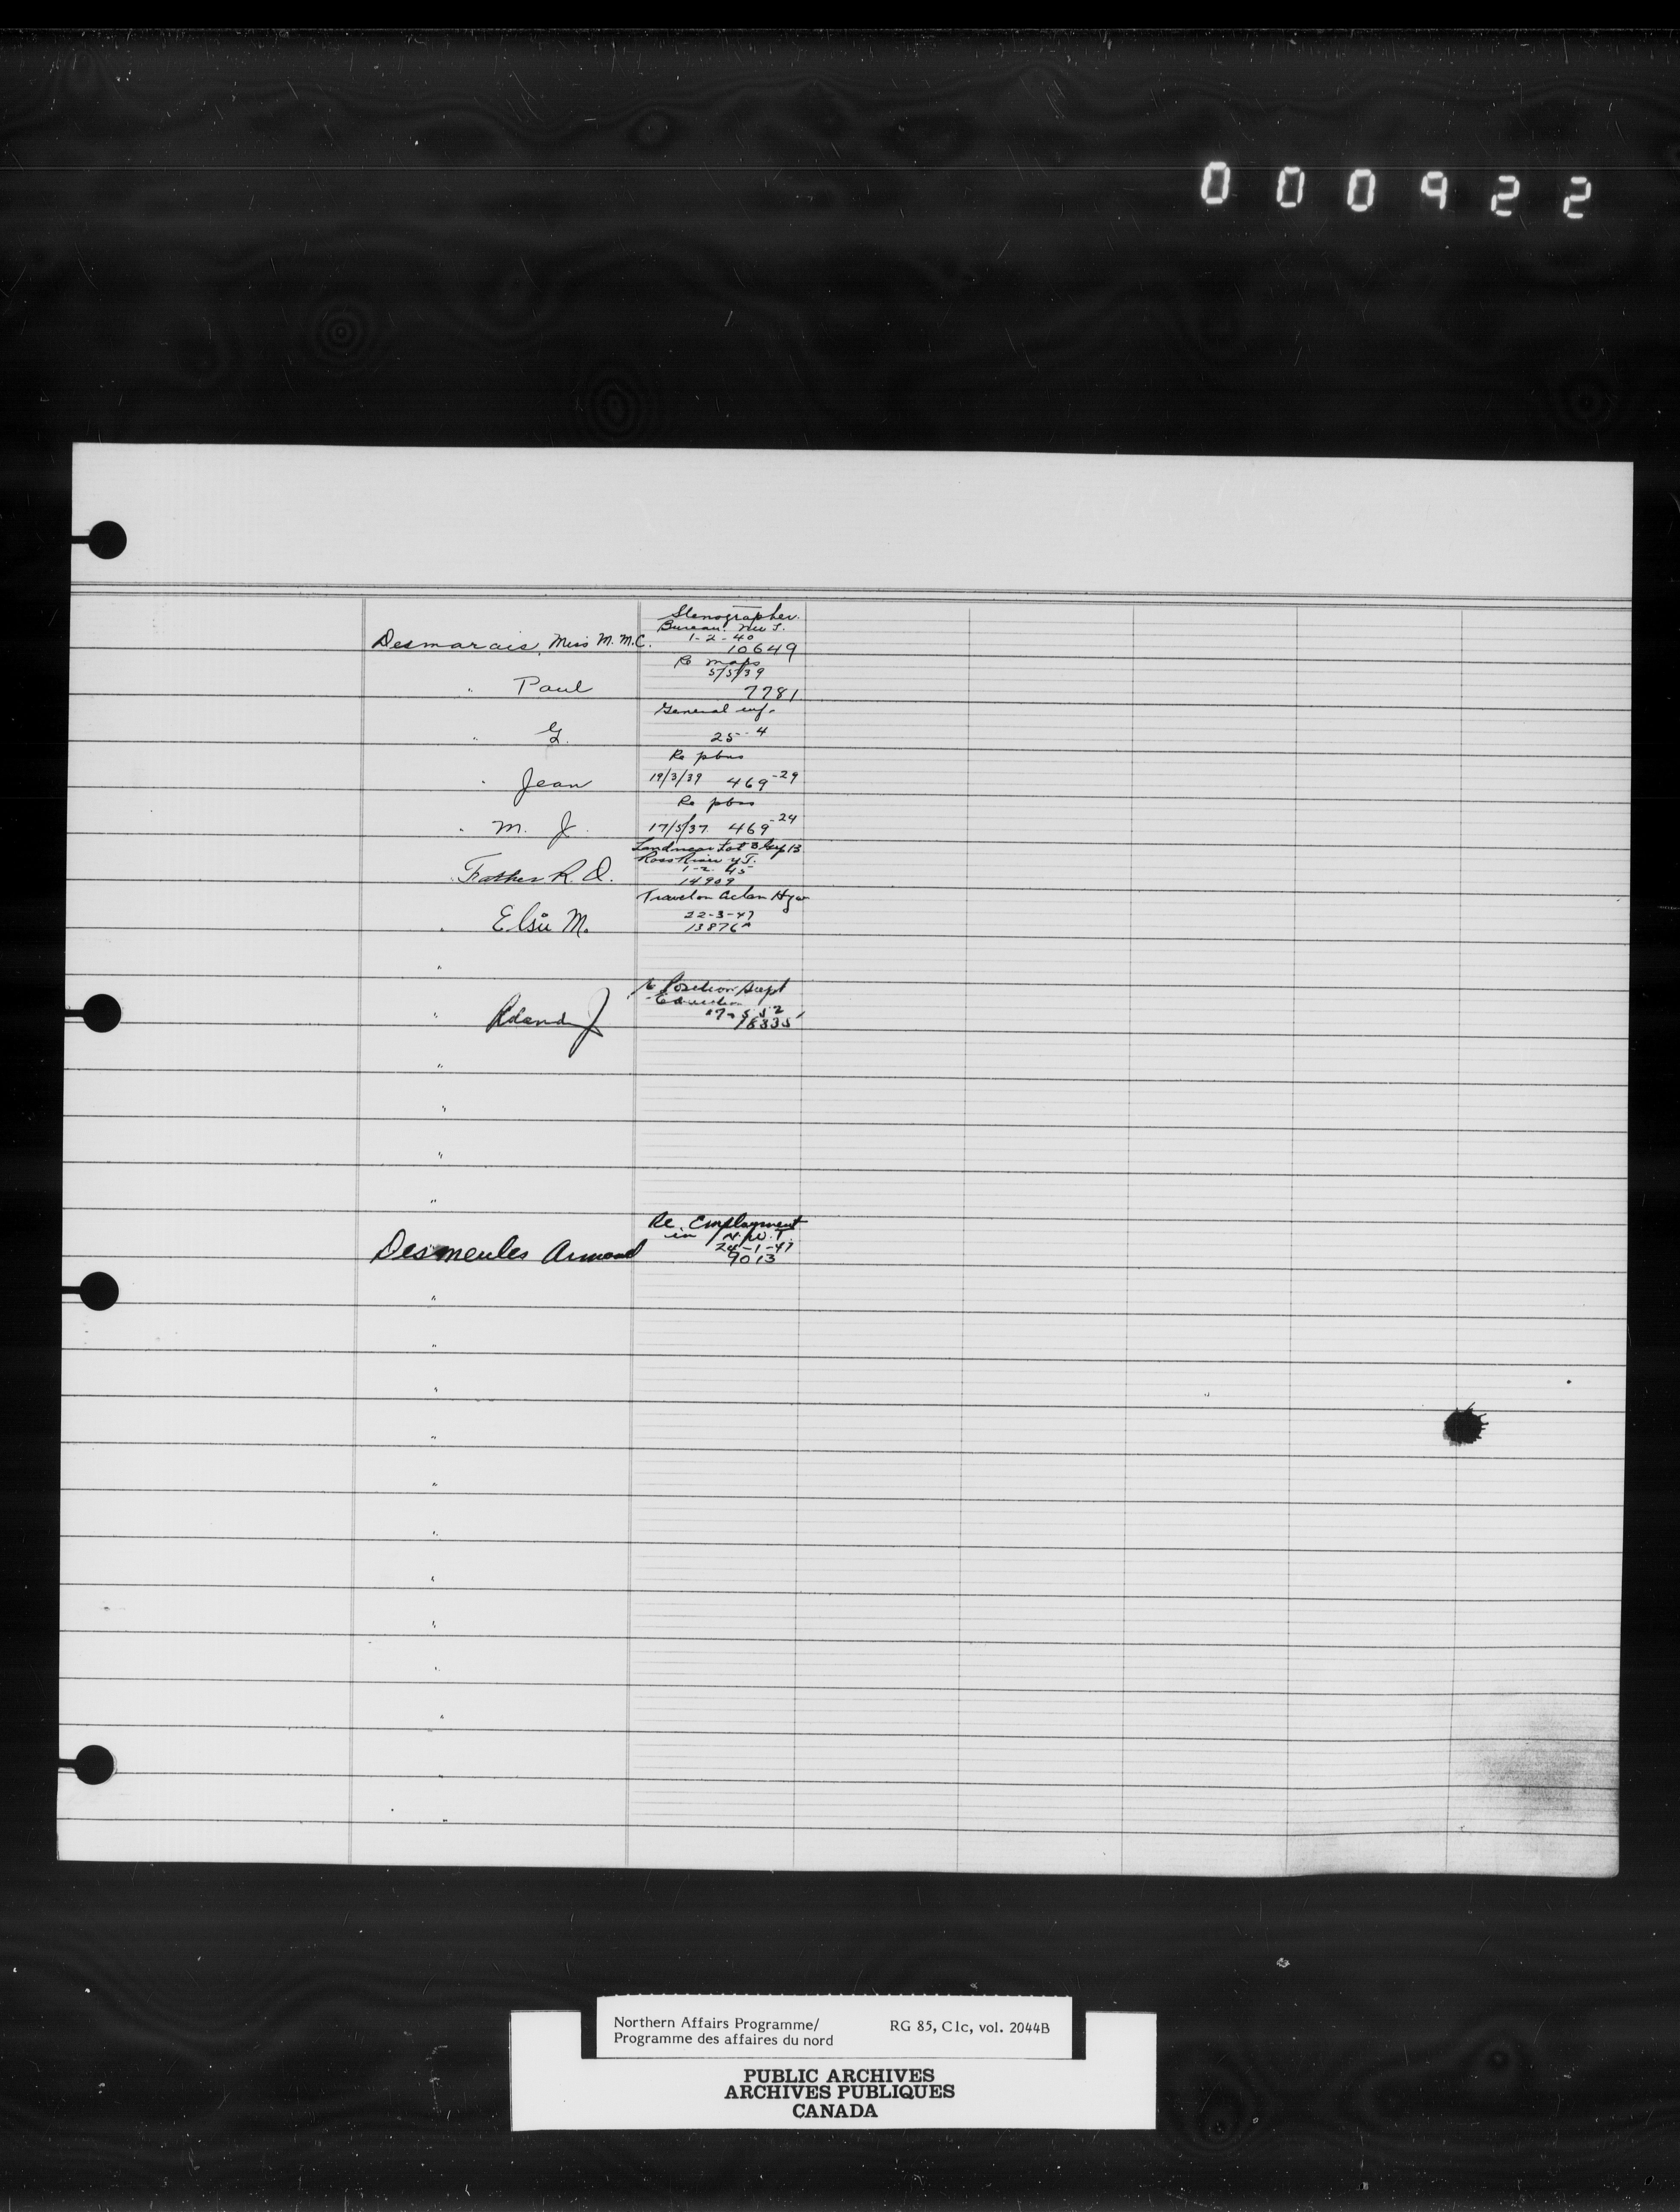 000922
Stenographer.
Bureau.
Desmarais, Miss M. M. C. 1-2-40
10649
Re maps
5/5/39
" Paul 7781
General inf.
" G. 25-4
Re pbns
" Jean 19/3/39 469-29
Re pbns
" M. J. 17/5/37 469-24
Land near Lot 3 Gup 13
Ross River Y.T.
1-2-45
" Father R. O. 14909
Travel on Hy
22-3-47
" Elsie M. 13876A
"
Position Supt
Education
" Roland J 18335
"
"
"
"
Re. Employment
in N.W.T.
24-1-47
Desmeules Armand 9013
"
"
"
"
"
"
"
"
"
"
"
Northern Affairs Programme/ RG 85, C1c, vol. 2044B
Programme des affaires du nord
PUBLIC ARCHIVES
ARCHIVES PUBLIQUES
CANADA